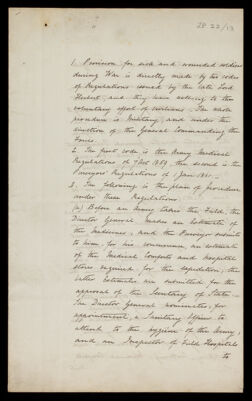 28.22/13
1. Provision for sick and wounded soldiers
during War is directly made by two codes
of Regulations issued by the late Lord
Herbert, and they leave nothing to the
voluntary effort of civilians. The whole
procedure is Military, and under the
direction of the General Commanding the
Forces.
2. The first code is the Army Medical
Regulations of 7 Oct 1859, the second is the
Purveyors' Regulations of 1 Jan 1861.
3. The following is the plan of procedure
under these Regulations
(a) Before an Army takes the Field, the
Director General makes an Estimate of
the Medicines, and the Purveyor submits
to him, for his concurrence, an estimate
of the Medical Comforts and Hospital
stores required, for the expedition; the
latter Estimates are submitted for the
approval of the Secretary of State.
The Director General nominates, for
appointment, a Sanitary Officer to
attend to the hygiene of the Army,
and an Inspector of Field Hospitals
to